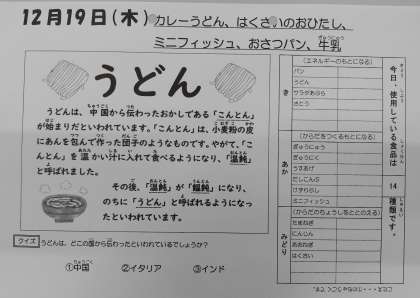 12月19日(木) カレーうどん、はくさいのおひたし、
ミニフィッシュ、おさつパン、牛乳
うどん
うどんは、中国から伝わったおかしである「こんとん」
が始まりだといわれています。「こんとん」は、小麦粉の皮
にあんを包んで作った団子のようなものです。やがて、「こ
んとん」を温かい汁に入れて食べるようになり、「温飩」
と呼ばれました。
その後、「温飩」が「饂飩」になり、
のちに「うどん」と呼ばれるようになっ
たといわれています。
クイズ うどんは、どこの国から伝わったといわれているでしょうか?
①中国 ②イタリア ③インド
き
(エネルギーのもとになる)
パン
うどん
サラダあぶら
さとう
あか
(からだをつくるもとになる)
ぎゅうにゅう
ぎゅうにく
うすあげ
だしこんぶ
けずりぶし
ミニフィッシュ
みどり
(からだのちょうしをととのえる)
たまねぎ
にんじん
あおねぎ
はくさい
今日、使用している食品は
14
種類です。